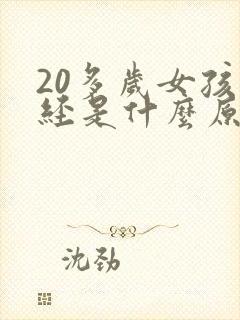 20多歲女孩
經是什麼原
沈勁